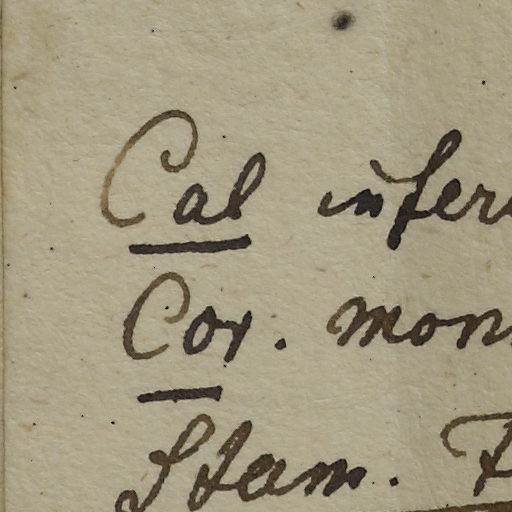 Cal infer
Cor. mon
Stam. F